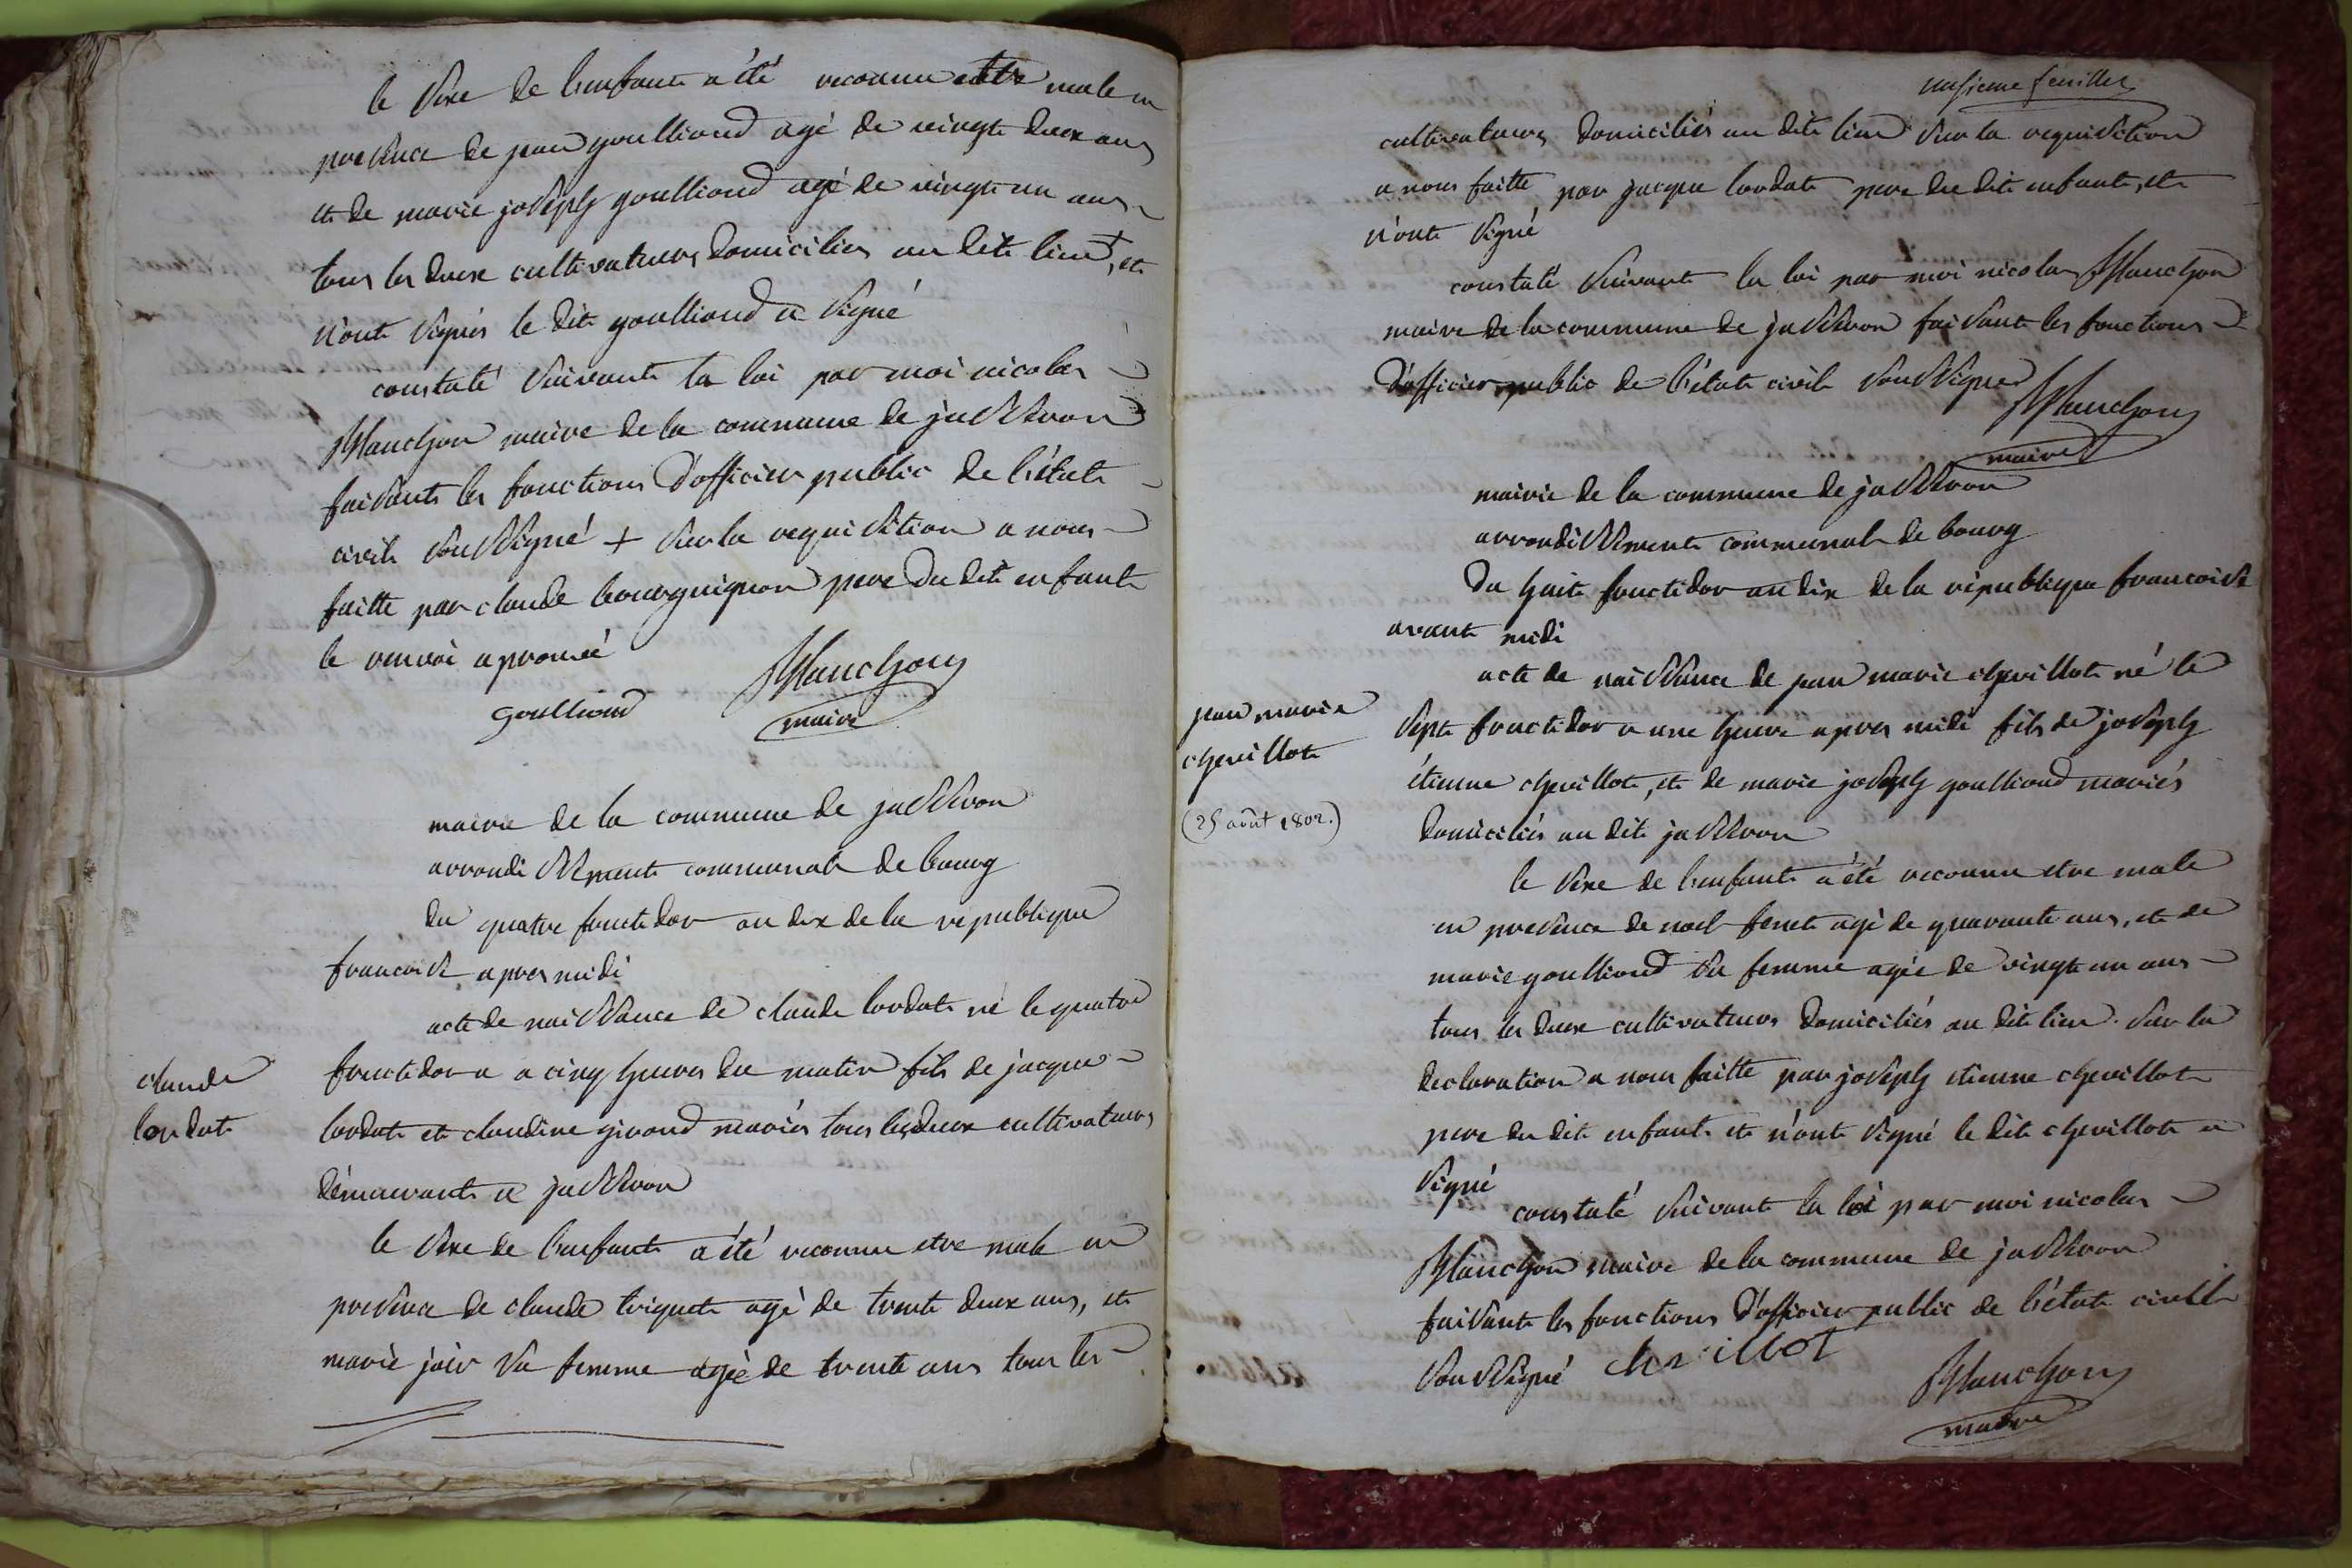 le sexe de l'enfant a été reconnu etre male en
presence de jean goulliond agé de vingt deux ans
et de marie joseph goulliond agé de vingt un ans
tous les deux cultivateurs domicilies au dit lieu + et
n'ont signés le dit goulliond a signé
constaté suivant la loi par moi nicolas
Blanchon maire de la commune de jasseron
faisants les fonctions d'officier public de l'état
civil soussigné + sur la requisition a nous
faitte par claude bourguignon pere du dit enfant
le renvoi aprouvé
goulliond
Blanchon
maire
mairie de la commune de jasseron
arrondissement communal de bourg
du quatre fructidor an dix de la republique
francoise apres midi
acte de naissance de claude londat né le quatre
claude
londat
fructidor a a cinq heures du matin fils de jacque
londat et claudine girand mariés tous les deux cultivateurs
démeurants a jasseron
le sexe de l'enfant a été reconnu etre male en
presence de claude triquet agé de trente deux ans, et
marie join sa femme agée de trente ans tous les
unsieme feuillet
cultivateurs domiciliés au dit lieu sur la requisition
a nous faitte par jacque londat pere du dit enfant, et
n'ont signé
constaté suivant la loi par moi nicolas Blanchon
maire de la commune de jasseron faisant les fonctions
d'officier public de l'état civil soussigné
Blanchon
maire
mairie de la commune de jasseron
arrondissement communal de bourg
du huit fructidor an dix de la république francoise
avant midi
acte de naissance de jean marie chevillot né le
jean marie
chevillot
(25 août 1802.)
sept fructidor a une heure apres midi fils de joseph
étienne chevillot, et de marie joseph goulliond mariés
domiciliés au dit jasseron
le sexe de l'enfant a été reconnu etre male
en presence de noel feret agé de quarante ans, et de
marie goulliond sa femme agée de vingt un ans
tous les deux cultivateurs domiciliés au dit lieu. sur la
declaration a nous faitte par joseph etienne chevillot
pere du dit enfant et n'ont signé le dit chevillot a
signé
constaté suivant la loi par moi nicolas
Blanchon maire de la commune de jasseron
faisant les fonctions d'officier public de l'état civill
soussigné chevillot
Blanchon
maire